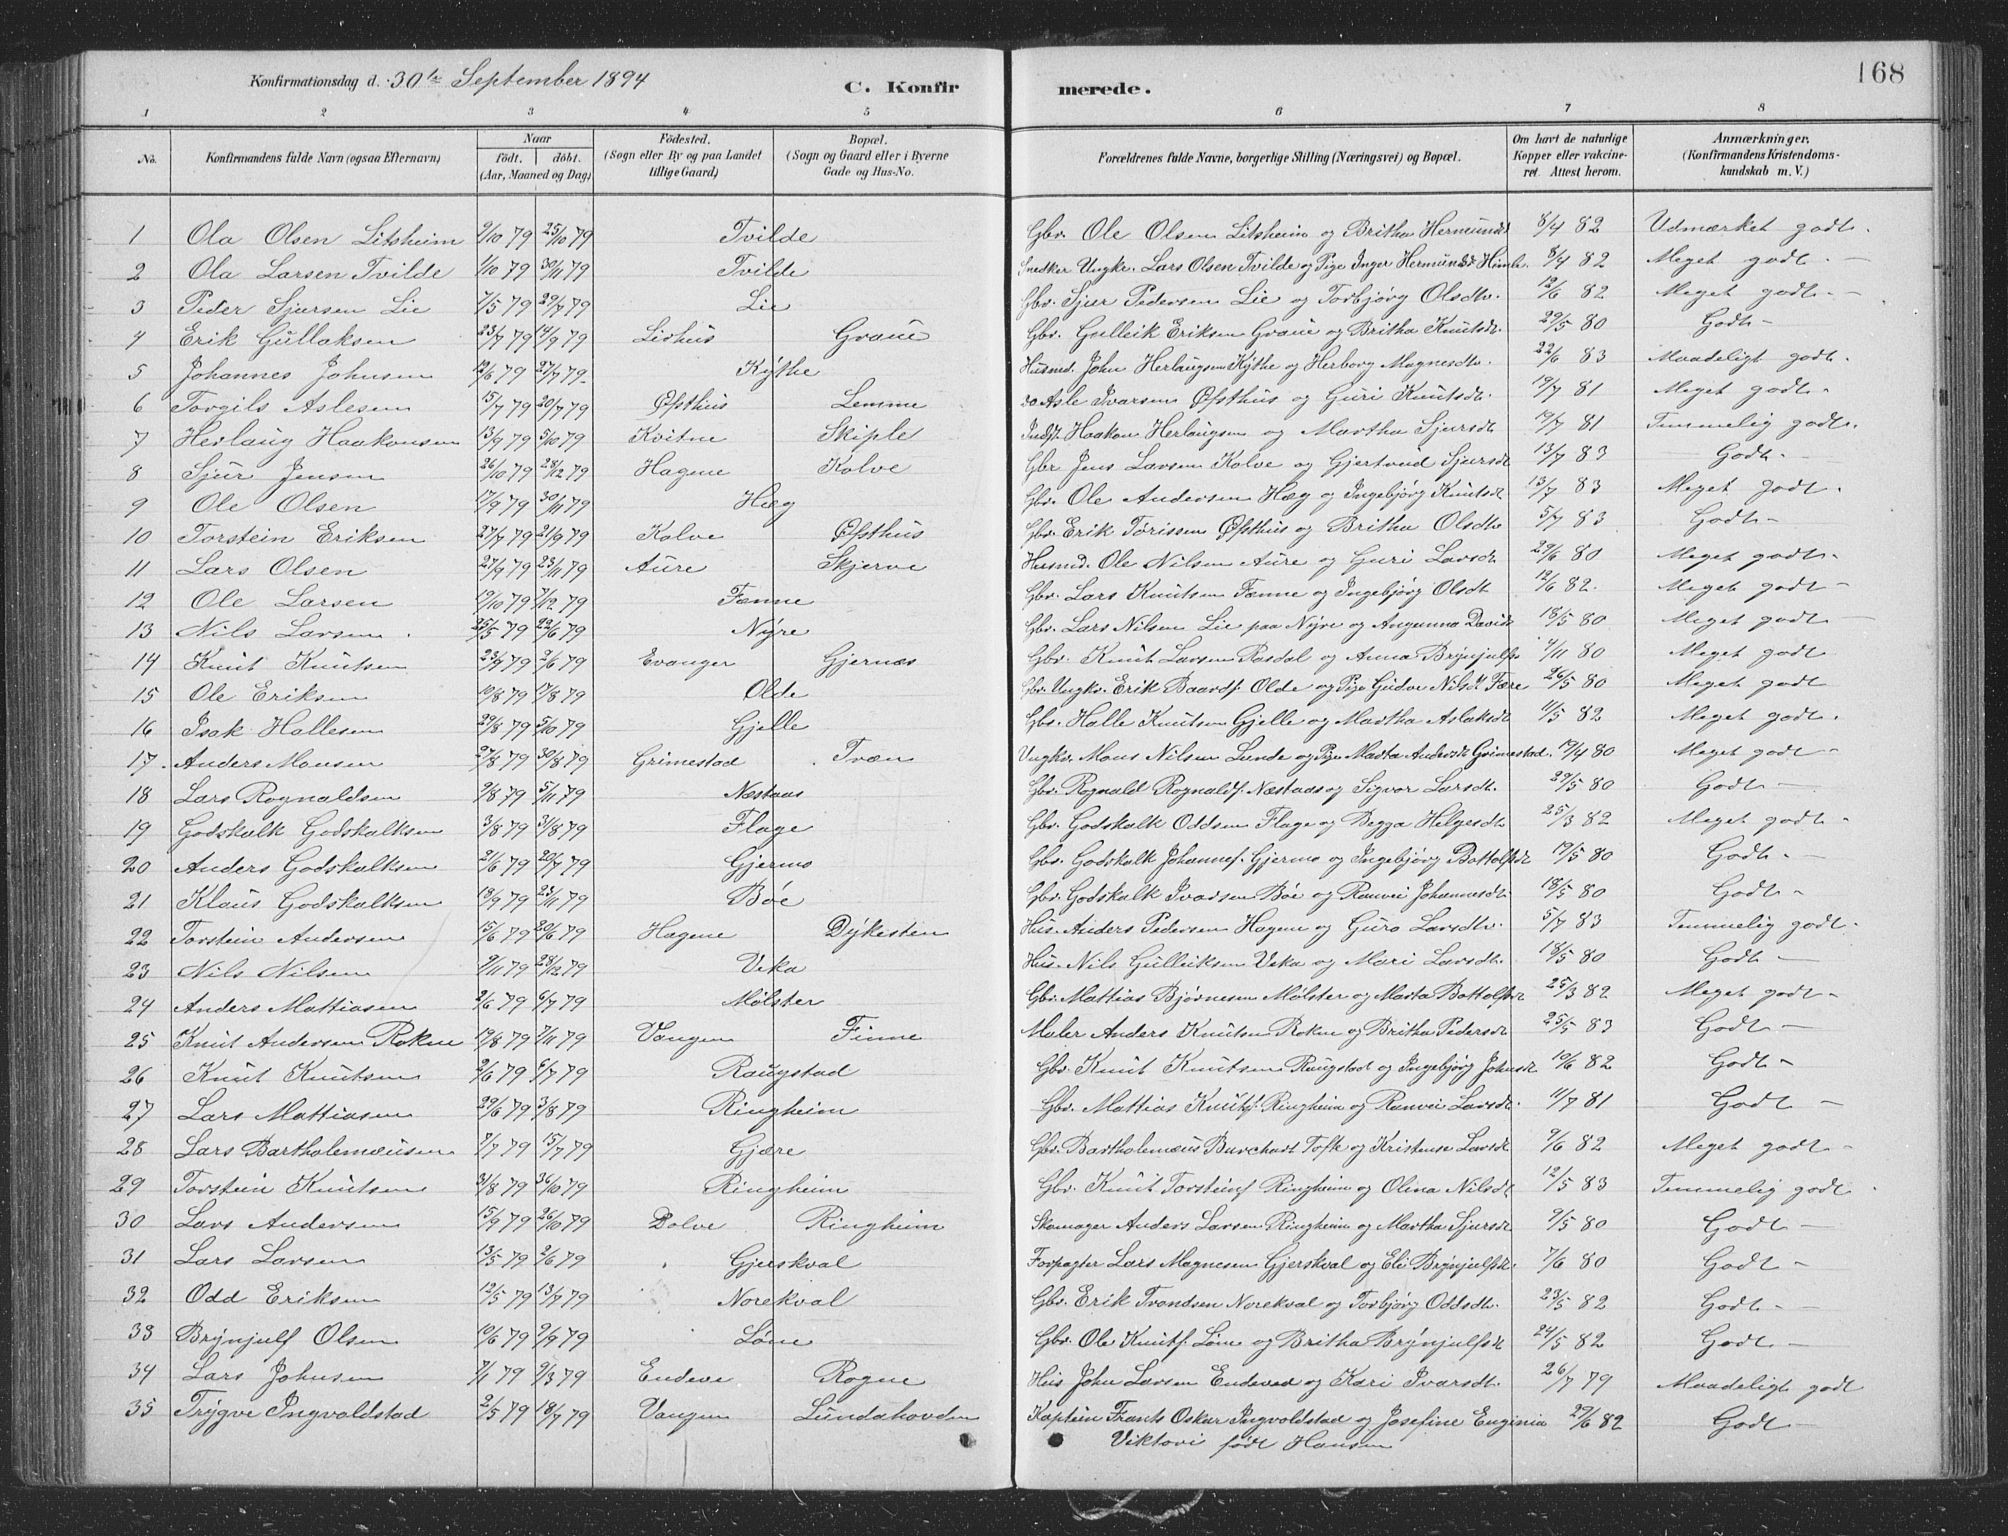 168
Konfirmationsdag d. 30te September 1894 C. Konfirmerede.
1 2 3 4 5 6 7 8
No. Konfirmandens fulde Navn (ogsaa Efternavn) Naar Födt. döbt. (Aar, Maaned og Dag) Födested. (Sogn eller By og paa Landet tillige Gaard) Bopæl. (Sogn og Gaard eller i Byerne Gade og Hus-No. Forældrenes fulde Navne, borgerlige Stilling (Næringsvei) og Bopæl. Om havt de naturlige Kopper eller vakcineret. Attest herom. Anmærkninger. (Konfirmandens Kristendomskundskab m. V.)
1 Ola Olsen Litsheim 9/10 79 25/10 79 Tvilde Gbr. Ole Olsen Litsheim og Britha Hermundsdt 8/4 82 Udmærket godt.
2 Ola Larsen Tvilde 1/10 79 30/11 79 Tvilde Snedker Ungkr. Lars Olsen Tvilde og Pige Inger Hermundsdt Himle. 8/4 82 Meget godt. -
3 Peder Sjursen Lie 7/5 79 29/7 79 Lie Gbr. Sjur Pedersen Lie og Torbjørg Olsdtr. 12/6 82 Meget godt. -
4 Erik Gullaksen 23/7 79 14/9 79 Livhus Graue Gbr. Gulleik Eriksen Graue og Britha Knutsdt. 29/5 80 Godt -
5 Johannes Johnsen 12/6 79 27/7 79 Kythe Husmd. John Herlaugsen Kythe og Herborg Magnesdtr. 22/6 83 Maadeligt godt.
6 Torgils Aslesen 15/7 79 20/7 79 Øfsthus Lemme do Asle Ivarsen Øfsthus og Guri Knutsdt. 19/7 81 Meget godt -
7 Herlaug Haakonsen 13/9 79 5/10 79 Kvitne Skiple Indst. Haakon Herlaugsen og Martha Sjursdt 19/7 81 Temmelig godt.
8 Sjur Jensen 26/10 79 28/12 79 Hagene Kolve Gbr Jens Larsen Kolve og Gjertrud Sjursdt 13/7 83 Godt. -
9 Ole Olsen 17/9 79 30/11 79 Hæg Gbr. Ole Andersen Hæg og Ingebjørg Knutsdt 13/7 83 Meget godt.
10 Torstein Eriksen 27/7 79 21/9 79 Kolve Øfsthus Gbr. Erik Torissen Øfsthus og Britha Olsdtr 5/7 83 Godt -
11 Lars Olsen 27/9 79 23/11 79 Aure Skjerve Husmd. Ole Nilsen Aure og Guri Larsdt 29/6 80 Meget godt.
12 Ole Larsen 19/10 79 7/12 79 Fænne Gbr. Lars Knutsen Fænne og Ingebjørg Olsdt 12/6 82. Meget godt -
13 Nils Larsen 25/5 79 22/6 79 Nyre Gbr. Lars Nilsen Lie paa Nyre og Angunna Davids 18/5 80 Meget godt.
14 Knut Knutsen 23/9 79 2/6 79 Evanger Gjernæs Gbr. Knut Larsen Rasdal og Anna Brynjulfs 4/11 80 Meget godt
15 Ole Eriksen 10/8 79 17/8 79 Olde Gbr. Ungkr. Erik Baardf. Olde og Pige Gudve Nilsdt Fære 26/5 80 Meget godt
16 Isak Hallesen 29/8 79 5/10 79 Gjelle Gbr. Halle Knutsen Gjelle og Martha Aslaksdt 11/5 82 Meget godt.
17. Anders Monsen 27/8 79 30/8 79 Grimestad Træn Ungkr. Mons Nilsen Lunde og Pige Marta Andersdt Grimestad. 19/4 80 Meget godt -
18 Lars Rognaldsen 9/8 79 5/11 79 Næstaas Gbr. Rognald Rognaldf. Næstaas og Sigvor Larsdt. 29/5 80 Godt. -
19 Godskalk Godskalksen 3/8 79 31/8 79 Flage Gbr. Godskalk Oddsen Flage og Begga Helgesdt 25/3 82 Meget godt. -
20 Anders Godskalksen 21/6 79 20/7 79 Gjermo Gbr. Godskalk Johannesf. Gjermo og Ingebjørg Bottolfsdt 19/5 80 Godt. -
21 Klaus Godskalksen 18/9 79 23/11 79 Bøe Gbr. Godskalk Ivarsen Bøe og Ranvei Johannesdt. 18/5 80 Godt -
22 Torstein Andersen 15/6 79 20/6 79 Hagene Dykesten Hus. Anders Pedersen Hagene og Guro Larsdtr. 5/7 83 Temmelig godt.
23 Nils Nilsen 9/11 79 28/12 79 Veka Hus. Nils Gulleiksen Veka og Mari Larsdt. 18/5 80 Godt -
24 Anders Mattiasen 2/6 79 6/7 79 Mølster Gbr. Mattias Bjørnesen Mølster og Marta Bottolfsdt 25/3 82 Meget godt -
25 Knut Andersen Rokne 19/8 79 7/11 79 Vangen Finne Maler Anders Knutsen Rokne og Britha Pedersdt 25/5 83 Godt -
26 Knut Knutsen 2/6 79 6/7 79 Raugstad Gbr. Knut Knutsen Raugstad og Ingebjørg Johnsdt 10/6 82 Godt -
27 Lars Mattiasen 29/6 79 3/8 79 Ringheim Gbr. Mattias Knutf. Ringheim og Ranvei Larsdt. 11/7 81 Godt -
28 Lars Bartholemæusen 7/7 79 15/7 79 Gjære Gbr. Bartholemæus Burchart Tofte og Kristense Larsdt 9/6 82 Meget godt -
29 Torstein Knutsen 31/8 79 26/10 79 Ringheim Gbr. Knut Torsteinf Ringheim og Olina Nilsdt 12/5 83 Temmelig godt.
30 Lars Andersen 15/9 79 26/10 79 Dolve Ringheim Skomager Anders Larsen Ringheim og Martha Sjursdt 9/5 80 Godt -
31 Lars Larsen 13/5 79 2/6 79 Gjerskval Forpagter Lars Magnesen Gjerskval og Eli Brynjulfsdt. 7/6 80 Godt -
32 Odd Eriksen 12/5 79 13/7 79 Norekval Gbr. Erik Trondsen Norekval og Torbjørg Oddsdtr. 23/5 82 Godt -
33 Brynjulf Olsen 10/6 79 9/9 79 Løne Gbr. Ole Knutf. Løne og Britha Brynjulfsdt 24/5 82 Godt -
34 Lars Johnsen 7/1 79 9/3 79 Endeve Rogne Hus John Larsen Endeved og Kari Ivarsdt. 26/7 79 Maadeligt godt
35 Trygve Ingvoldstad 2/5 79 18/7 79 Vangen Lundahovden Kaptein Frants Oskar Ingvoldstad og Josefine Euginia 29/6 82 Godt -
Viktori født Hansen